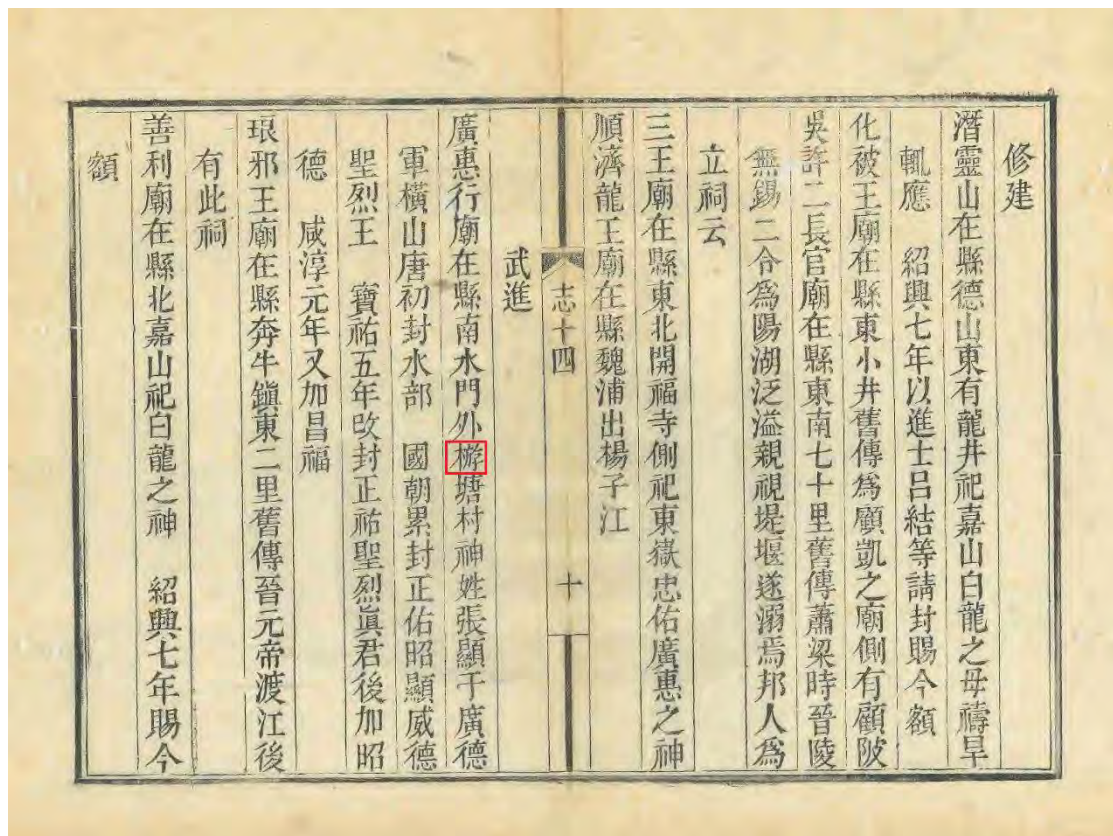 修建
潛靈山在縣德山東有龍井祀嘉山白龍之母禱旱
輒應　紹興七年以進士吕結等請封賜今額
化被王廟在縣東小井舊傳爲顧凱之廟側有顧陂
吳許二長官廟在縣東南七十里舊傳蕭梁時晉陵
無錫二令爲陽湖泛溢親視堤堰遂溺焉邦人爲
立祠云
三王廟在縣東北開福寺側祀東嶽忠佑廣惠之神
順濟龍王廟在縣魏浦出楊子江
志十四　十
武進
廣惠行廟在縣南水門外塘村神姓張顯于廣德
軍橫山唐初封水部　國朝累封正佑昭顯威德
聖烈王　寶祐五年改封正祐聖烈眞君後加昭
德　咸淳元年又加昌福
琅邪王廟在縣奔牛鎭東二里舊傳晉元帝渡江後
有此祠
善利廟在縣北嘉山祀白龍之神　紹興七年賜今
額